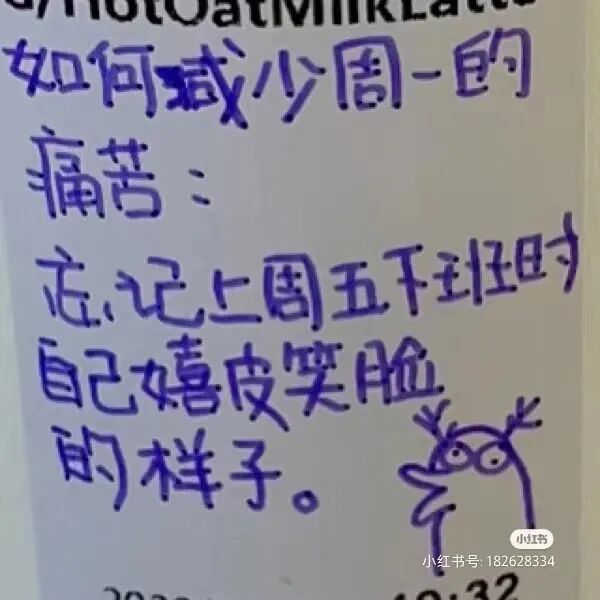 HotOatMilkLatte
如何减少周一的
痛苦：
忘记上周五下班时
自己嬉皮笑脸
的样子。
小红书
小红书号: 182628334